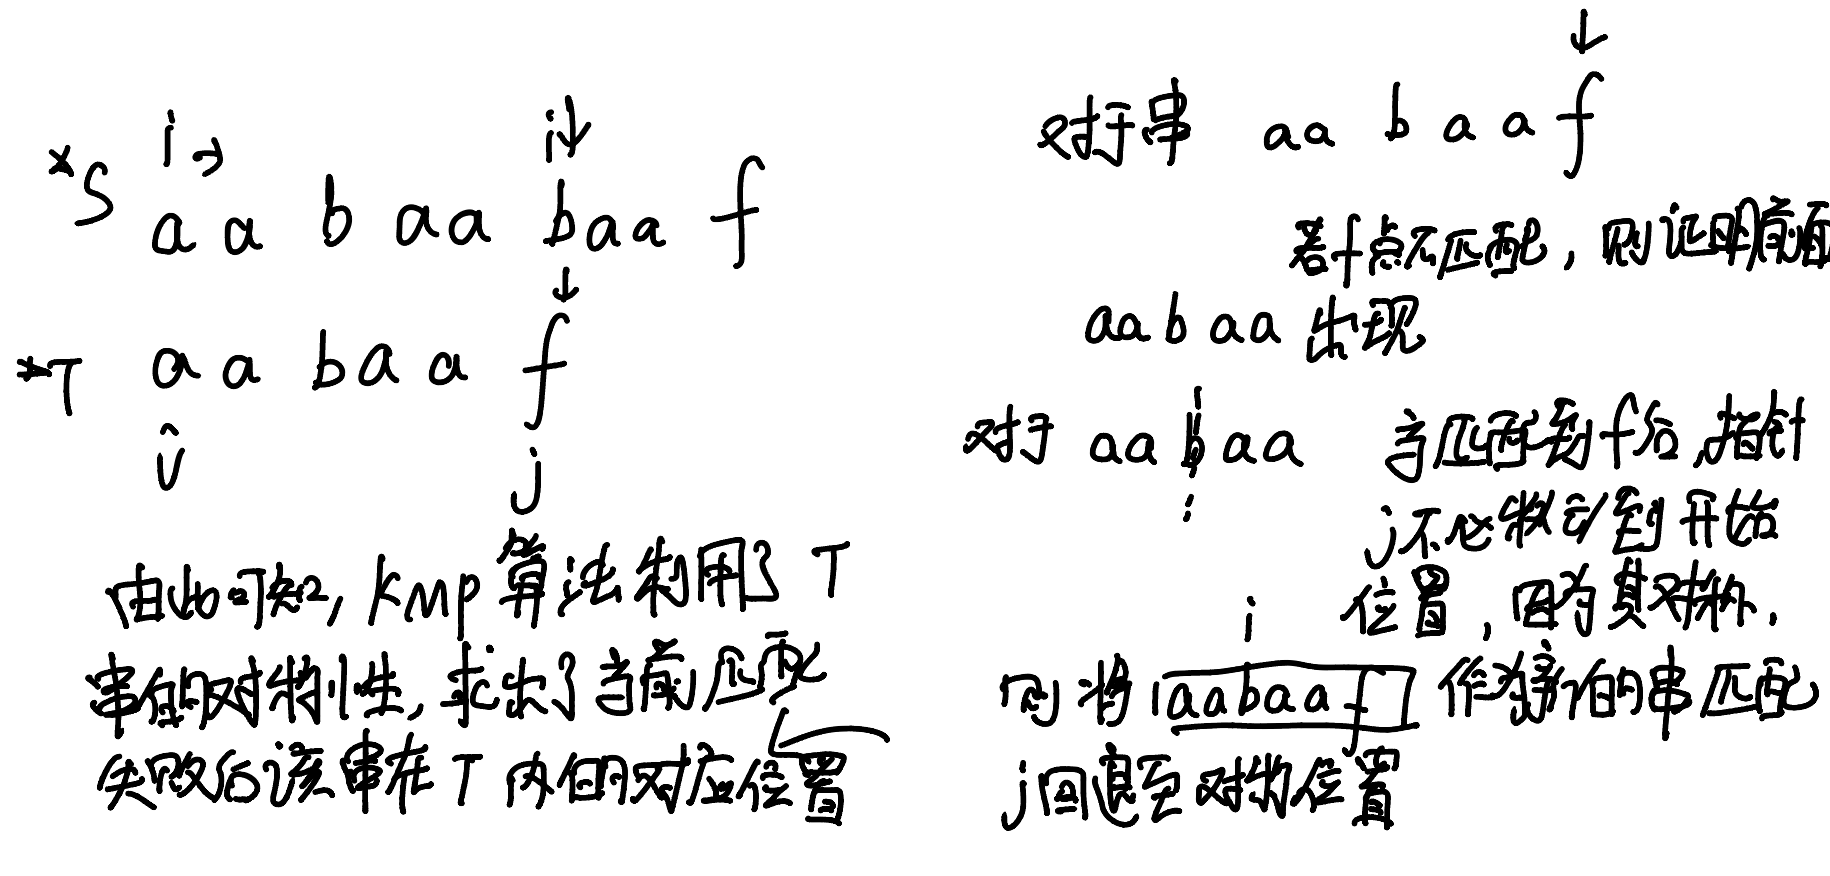 i→ i↓
*S a a b a a b a a f
↓
*T a a b a a f
j
由此可知, kmp 算法利用了 T
串的对称性, 求出了当前匹配
失败后该串在 T 内的对应位置
↓
对于串 aa b a a f
若f点不匹配, 则证明前面
aa b aa 出现
对于 aa b aa 当匹配到f后,指针
j不必移动到开始
位置, 因为其对称.
i
则将 aabaaf 作为新的串匹配
j回退至对称位置